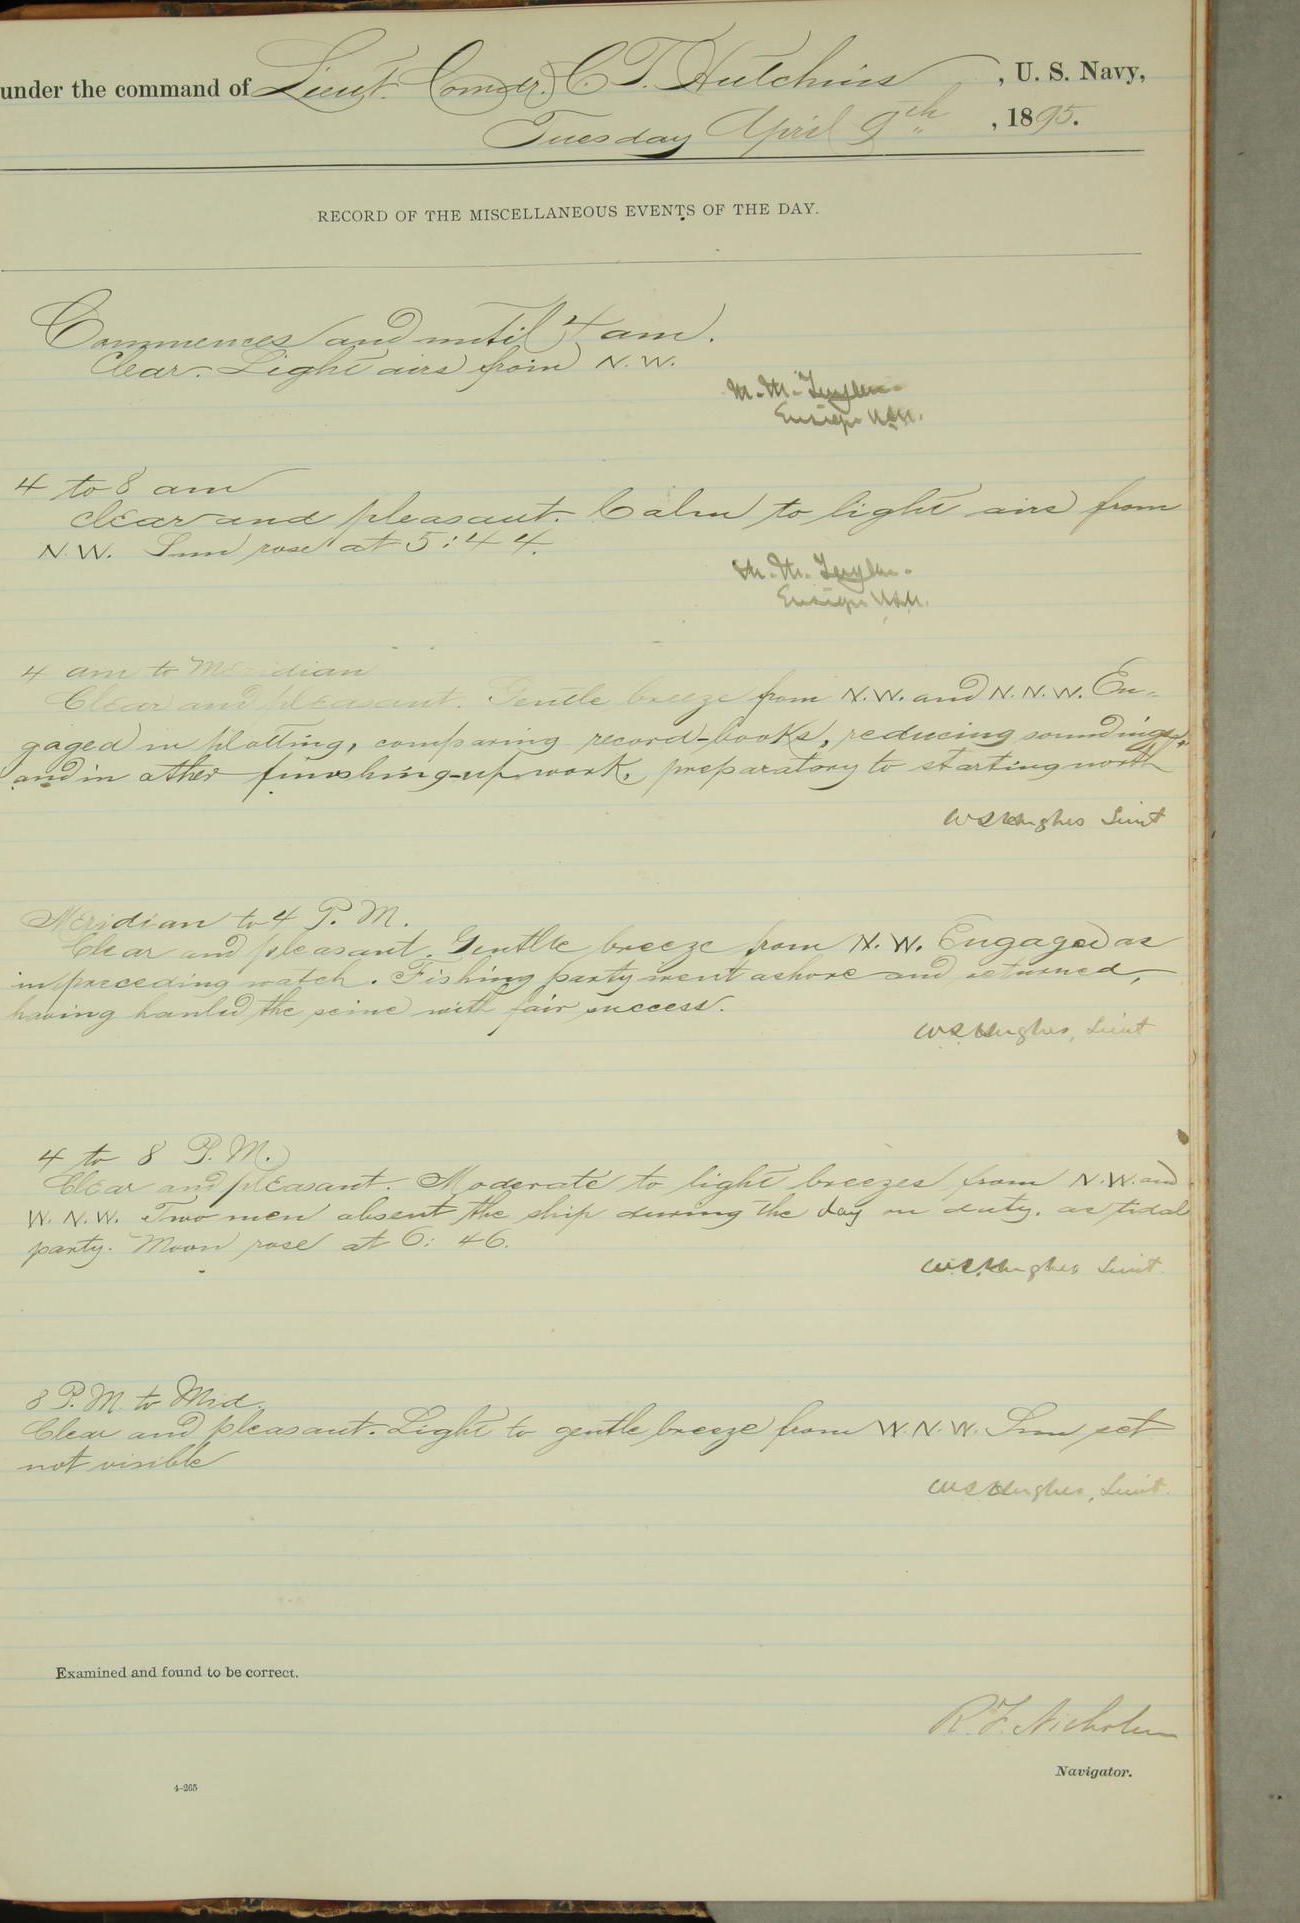 under the command of Lieut. Comdr. C. T. Hutchins, U. S. Navy,
Tuesday April 9th, 1895.
RECORD OF THE MISCELLANEOUS EVENTS OF THE DAY.
Commences and until 4 am.
Clear. Light airs from N.W.
M. M. Taylor.
Ensign U.S.N.
4 to 8 am
clear and pleasant. Calm to light airs from
N.W. Sun rose at 5:44.
M. M. Taylor.
Ensign U.S.N.
4 am to Meridian
Clear and pleasant. Gentle breeze from N.W. and N.N.W. En-
gaged in plotting, comparing record-books, reducing soundings,
and in other finishing-up work, preparatory to starting north
W S Hughes Lieut
Meridian to 4 P. M.
Clear and pleasant. Gentle breeze from N. W. Engaged as
in preceding watch. Fishing party went ashore and returned,
having hauled the seine with fair success.
W S Hughes, Lieut
4 to 8 P. M.
Clear and pleasant. Moderate to light breezes from N.W. and
W. N. W. Two men absent the ship during the day on duty. as tidal
party. Moon rose at 6: 46.
W.S. Hughes Lieut.
8 P. M. to Mid.
Clear and pleasant. Light to gentle breeze from W. N. W. Sun set
not visible
W S Hughes, Lieut.
Examined and found to be correct.
R. F. Nicholson
Navigator.
4-265